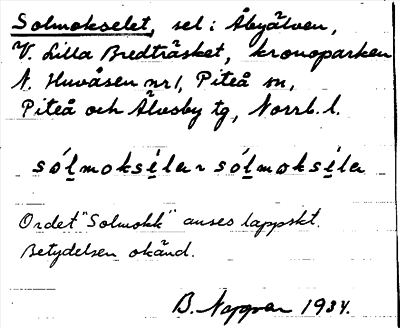 Solmokselet, sel i Åbyälven,
V. Lilla Bredträsket, kronoparken
N. Huvåsen nr 1, Piteå sn,
Piteå och Älvsby tg, Norrb. l.
sólmoksela ~ sólmoksela
Ordet "Solmokk" anses lappskt.
Betydelsen okänd.
B. 1934.